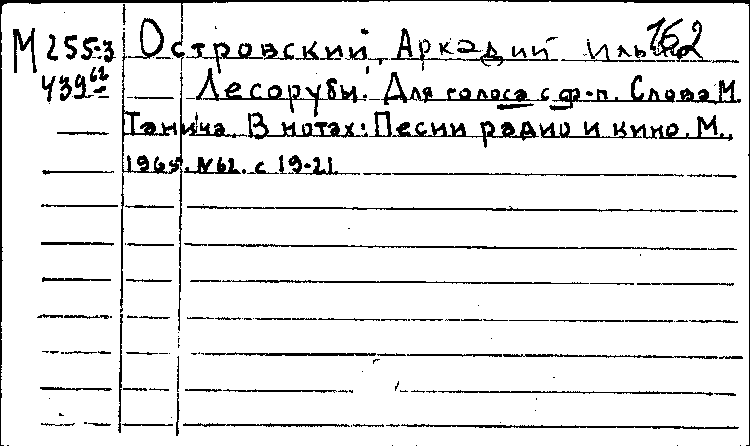 М 255-3 Островский, Аркадий Ильич 162
439 62 Лесорубы. Для голоса с ф-п. Слова М.
Танича. В нотах: Песни радио и кино. М.,
1965. №62. с 19-21.